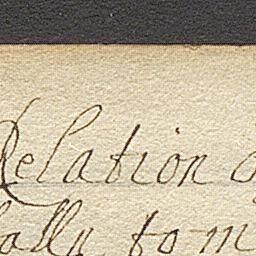 Relation o
ally to m